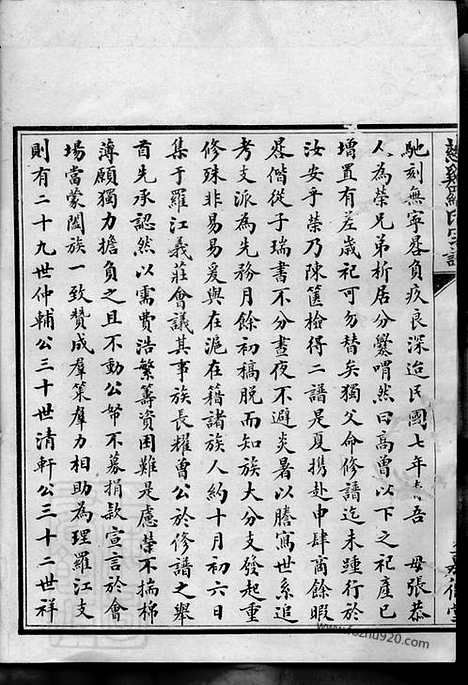 馳刻無寧晷負疚良深迨民國七年春吾 母張恭
人為榮兄弟析居分爨喟然曰高曾以下之祀產已
增置有差歲祀可勿替矣獨父命修譜迄未踵行於
汝安乎榮乃陳篋檢得二譜是夏攜赴申肆商餘暇
晷偕從子瑞書不分晝夜不避炎暑以謄寫世系追
考支派為先務月餘初稿脫而知族大分支發起重
修殊非易易爰與在滬在籍諸族人約十月初六日
集于羅江義莊會議其事族長耀曾公於修譜之舉
首先承認然以需費浩繁籌資困難是慮榮不揣棉
薄願獨力擔負之且不動公帑不募捐款宣言於會
場當蒙闔族一致贊成羣策羣力相助為理羅江支
則有二十九世仲輔公三十世清軒公三十二世祥
www.fozhu920.com